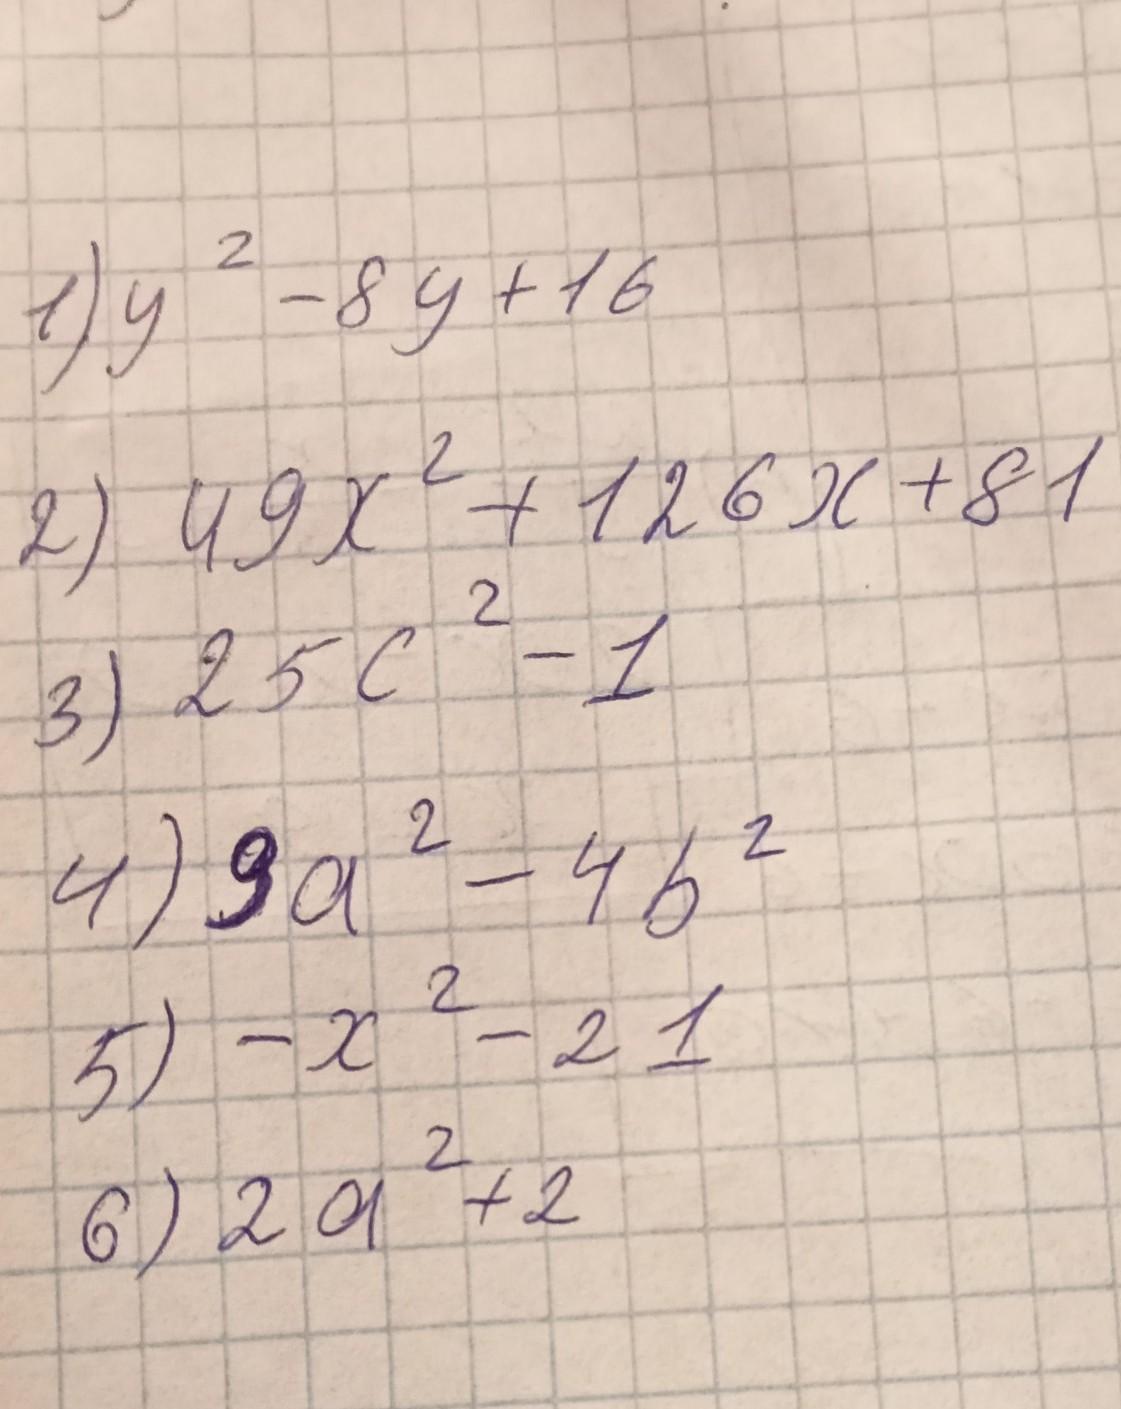 1) y² - 8y + 16
2) 49x² + 126x + 81
3) 25c² - 1
4) 9a² - 4b²
5) -x² - 21
6) 2a² + 2